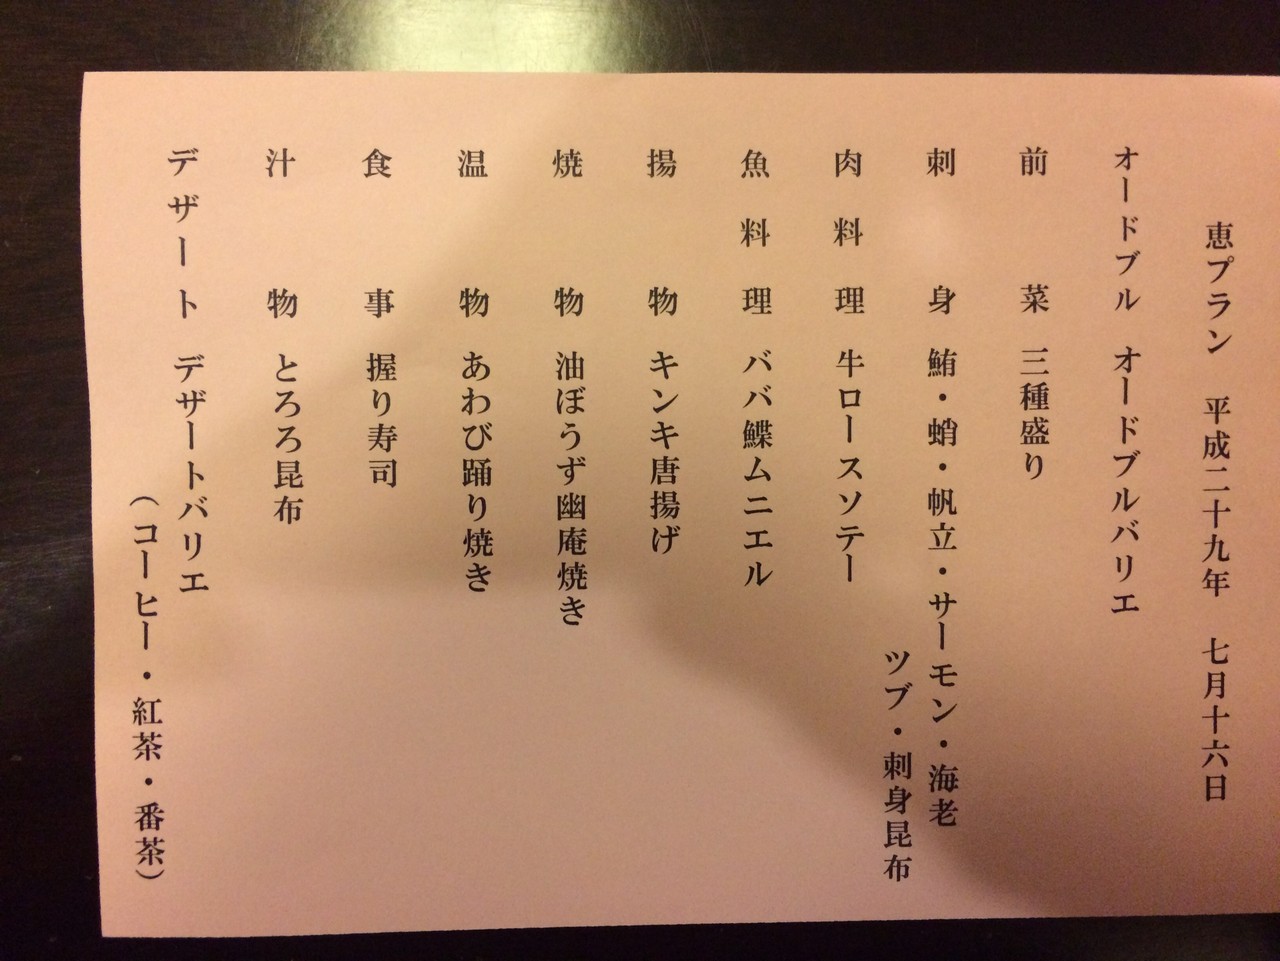 恵プラン 平成二十九年 七月十六日
オードブル オードブルバリエ
前菜 三種盛り
刺身 鮪・蛸・帆立・サーモン・海老
ツブ・刺身昆布
肉料理 牛ロースソテー
魚料理 ババ鰈ムニエル
揚物 キンキ唐揚げ
焼物 油ぼうず幽庵焼き
温物 あわび踊り焼き
食事 握り寿司
汁物 とろろ昆布
デザート デザートバリエ
（コーヒー・紅茶・番茶）